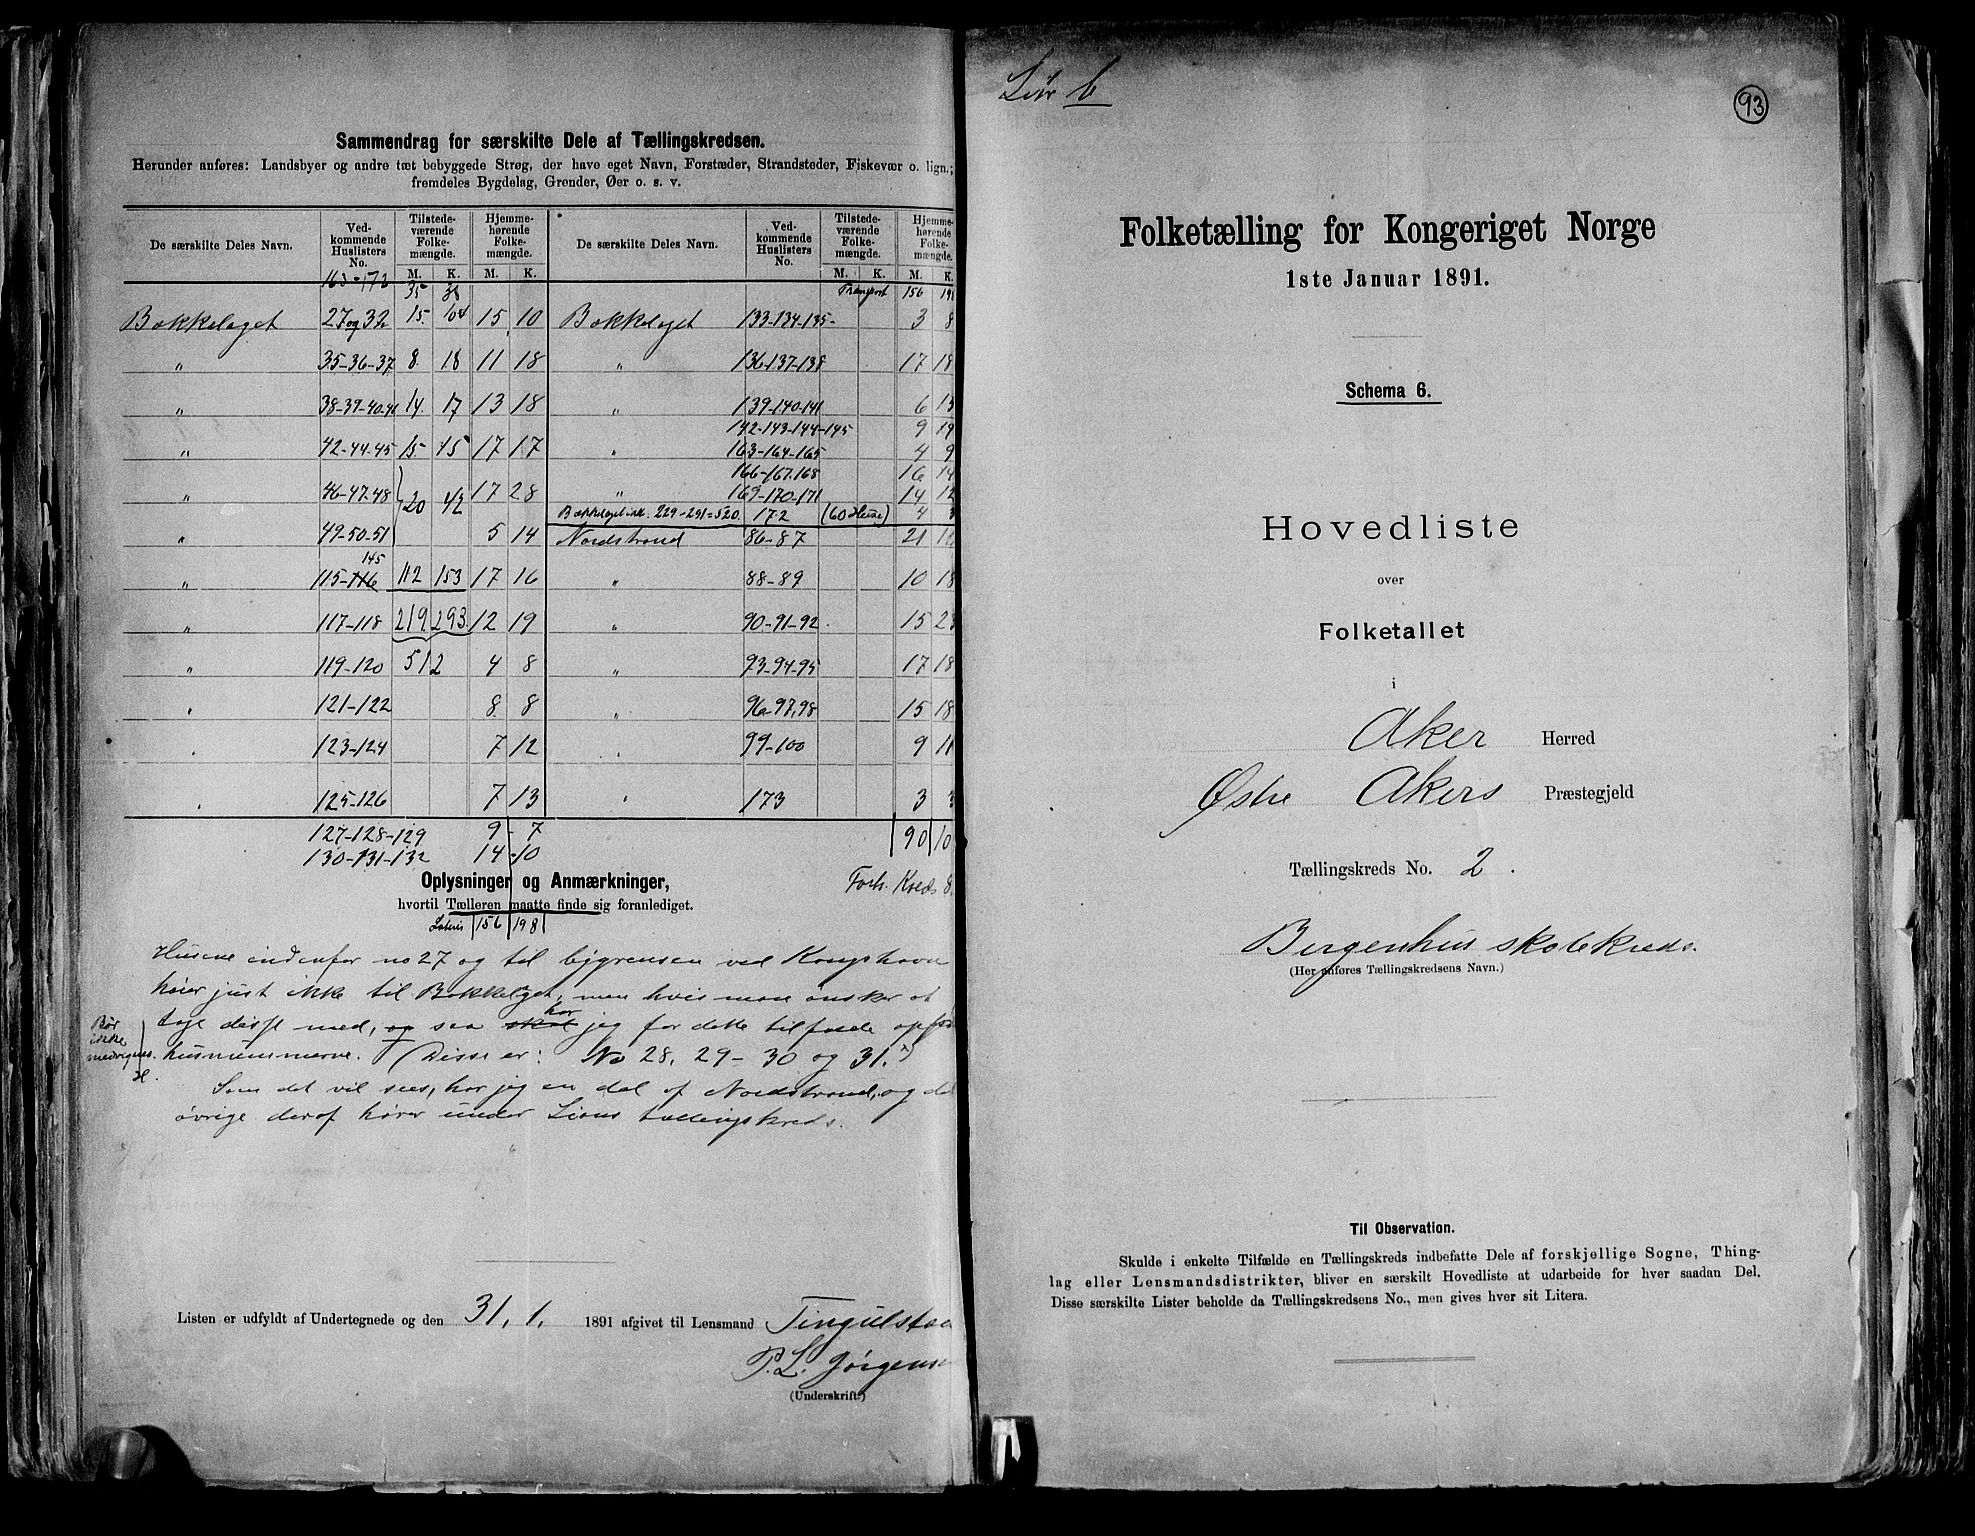 Sammendrag for særskilte Dele af Tællingskredsen.
Herunder anføres: Landsbyer og andre tæt bebyggede Strøg, der have eget Navn, Forstæder, Strandsteder, Fiskevær o. lign.;
fremdeles Bygdelag, Grender, Øer o. s. v.
De særskilte Deles Navn. Vedkommende Huslisters No. Tilstedeværende Folkemængde. M. K. Hjemmehørende Folkemængde. M. K. De særskilte Deles Navn. Vedkommende Huslisters No. Tilstedeværende Folkemængde. M. K. Hjemmehørende Folkemængde. M. K.
163-172 35 38 Transport 156
Bækkelaget 27 og 32 15. 15 10 Bækkelaget 133-134-135- 3 8
" 35-36-37 8. 18 11 18 " 136-137-138 17 18
" 38-39-40-41 14. 17 13 18 " 139-140-141 6 15
142-143-144-145 9 19
" 42-44-45 15. 15 17 17 " 163-164-165 4 9
166-167.168 16 14
" 46-47-48 20 42 17 28 " 169-170-171 14 12
Bækkelaget 229-291=520. 172 (60 Huse) 4 3
" 49-50-51 5 14 Nordstrand 86-87 21
145
" 115-116 112 153 17 16 " 88-89 10 18
" 117-118 219. 293. 12 19 " 90-91-92. 15
" 119-120 512 4 8 " 93-94-95 17 18
" 121-122 8. 8 " 96-97,98 15 18
" 123-124 7 12 " 99-100 9 11
" 125-126 7 13 " 173 3 3
127-128-129 9-7 90
130-131-132 14-10
Oplysninger og Anmærkninger, Forts. Kreds 8.
hvortil Tælleren maatte finde sig foranlediget.
Lateris 156 198
Husene indenfor no 27 og til bygrensen ved Kongshavn
hører just ikke til Bækkelaget, men hvis man ønsker at
tage disse med, og saa har jeg for dette tilfælde
husnummerne. (Disse er: No 28, 29-30 og 31.)
Bør
ikke
medregnes.
H.
Som det vil sees, har jeg en del af Nordstrand, og det
øvrige deraf hører under Lians tællingskreds.
Listen er udfyldt af Undertegnede og den 31. 1. 1891 afgivet til Lensmand Tingulstad
P. L. Jørgensen
(Underskrift.)
Litr b
93
Folketælling for Kongeriget Norge
1ste Januar 1891.
Schema 6.
Hovedliste
over
Folketallet
i
Aker Herred
Østre Akers Præstegjeld
Tællingskreds No. 2.
Bergenhus skolekreds.
(Her anføres Tællingskredsens Navn.)
Til Observation.
Skulde i enkelte Tilfælde en Tællingskreds indbefatte Dele af forskjellige Sogne, Thing-
lag eller Lensmandsdistrikter, bliver en særskilt Hovedliste at udarbeide for hver saadan Del.
Disse særskilte Lister beholde da Tællingskredsens No., men gives hver sit Litera.